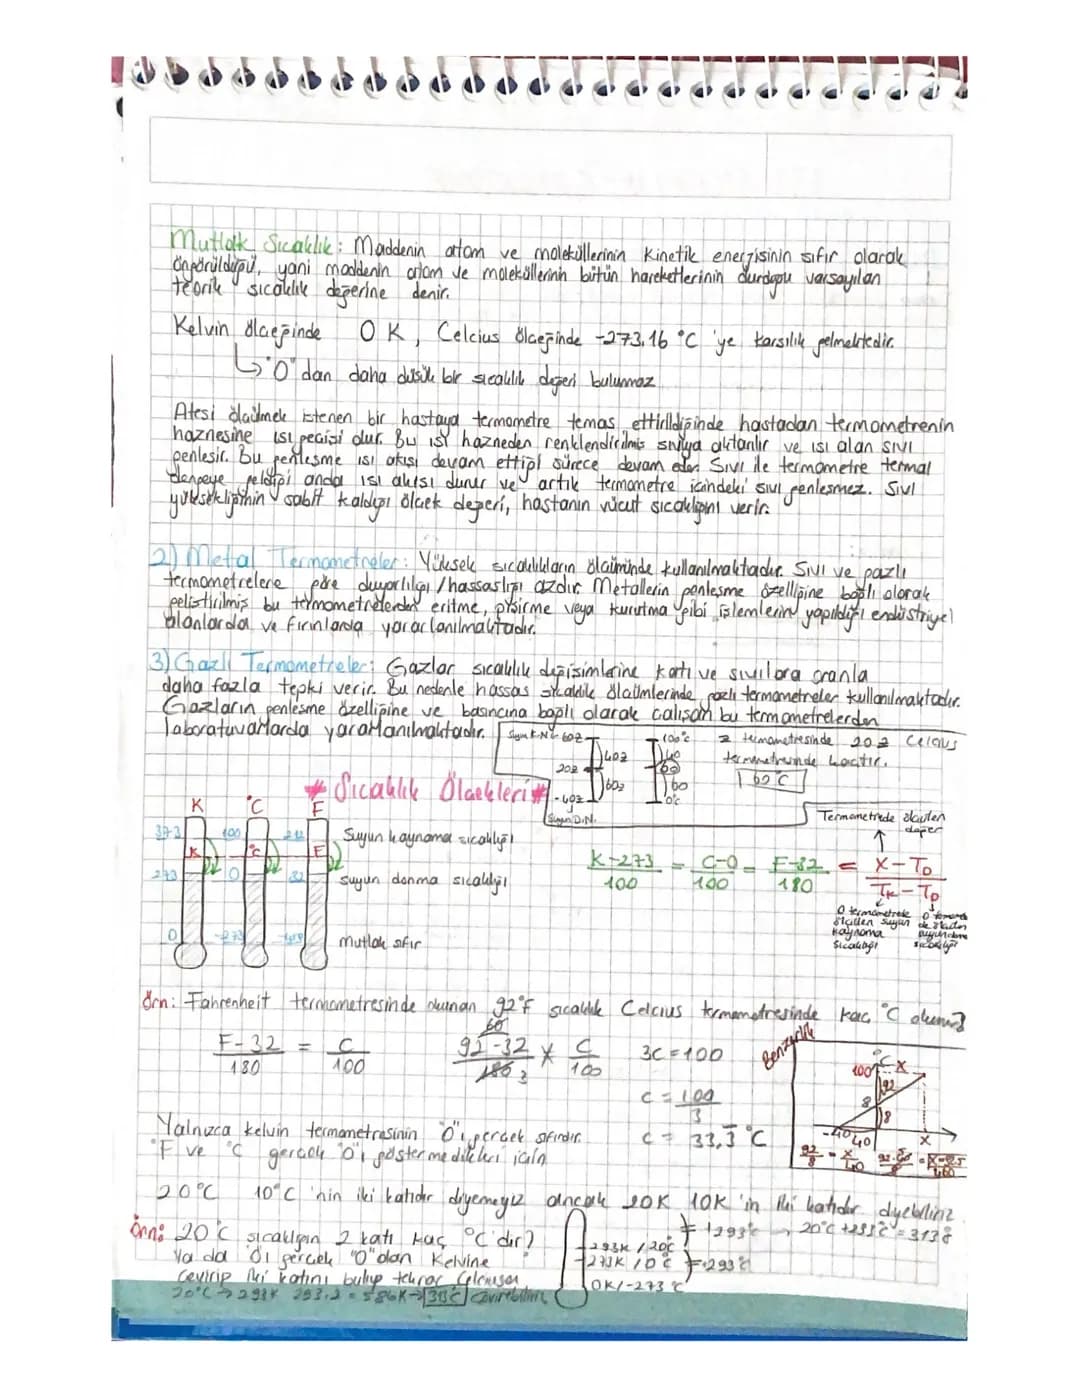 Mutlak Sıcaklık: Maddenin atom ve moleküllerinin kinetik enerjisinin sıfır olarak
öngörüldüğü, yani maddenin atom ve moleküllerinin bütün hareketlerinin durduğu varsayılan
teorik sıcaklık değerine denir.
Kelvin ölçeğinde 0 K, Celcius ölçeğinde -273,16 °C 'ye karşılık gelmektedir.
↳ "0" dan daha düşük bir sıcaklık değeri bulunmaz
Ateşi ölçülmek istenen bir hastaya termometre temas ettirildiğinde hastadan termometrenin
haznesine ısı geçişi olur. Bu ısı hazneden renklendirilmiş sıvıya aktarılır ve ısı alan sıvı
genleşir. Bu genleşme ısı akışı devam ettiği sürece devam eder. Sıvı ile termometre termal
dengeye geldiği anda ısı akışı durur ve artık termometre içindeki sıvı genleşmez. Sıvı
yüksekliğinin sabit kaldığı ölçek değeri, hastanın vücut sıcaklığını verir.
2) Metal Termometreler: Yüksek sıcaklıkların ölçümünde kullanılmaktadır. Sıvı ve gazlı
termometrelere göre duyarlılığı / hassaslığı azdır. Metallerin genleşme özelliğine bağlı olarak
geliştirilmiş bu termometrelerden eritme, pişirme veya kurutma gibi işlemlerin yapıldığı endüstriyel
alanlarda ve fırınlarda yararlanılmaktadır.
3) Gazlı Termometreler: Gazlar sıcaklık değişimlerine katı ve sıvılara oranla
daha fazla tepki verir. Bu nedenle hassas sıcaklık ölçümlerinde gazlı termometreler kullanılmaktadır.
Gazların genleşme özelliğine ve basıncına bağlı olarak çalışan bu termometrelerden
laboratuvarlarda yararlanılmaktadır.
Suyun K.N ← 60Z 100°C Z termometresinde 20 Z Celcius
40Z 40 termometresinde kaçtır.
20Z 60 60°C
60Z 60
-40Z 0°C
Suyun D.N.
* Sıcaklık Ölçekleri *
K °C F
373 100 212 Suyun kaynama sıcaklığı
K °C F
273 0 32 Suyun donma sıcaklığı
0 -273 -459 Mutlak sıfır
K-273 / 100 = C-0 / 100 = F-32 / 180 = X-TD / TK-TD
Termometrede ölçülen değer
O termometrede ölçülen suyun kaynama sıcaklığı
Örn: Fahrenheit termometresinde okunan 92°F sıcaklık Celcius termometresinde kaç °C okunur?
F-32 / 180 = C / 100
60
92-32 / 180 3 × C / 100
3C = 100
C = 100 / 3
C = 33,3 °C
Benzerlik
°C X
100
92
8
8
-40 40 X
Yalnızca kelvin termometresinin "0"ı gerçek sıfırdır.
°F ve °C gerçek "0"ı göstermedikleri için
20°C 10°C 'nin iki katıdır diyemeyiz ancak 20K 10K 'in iki katıdır diyebiliriz
Örn: 20°C sıcaklığın 2 katı kaç °C'dir?
Ya da 0'ı gerçek "0" olan Kelvine
çevirip iki katını bulup tekrar Celciusa
20°C → 293K 293.2 = 586K → 313°C çevirebiliriz
293K / 20°C
273K / 0°C
0K / -273°C
+293°C → 20°C + 293°C = 313°C
+293°C